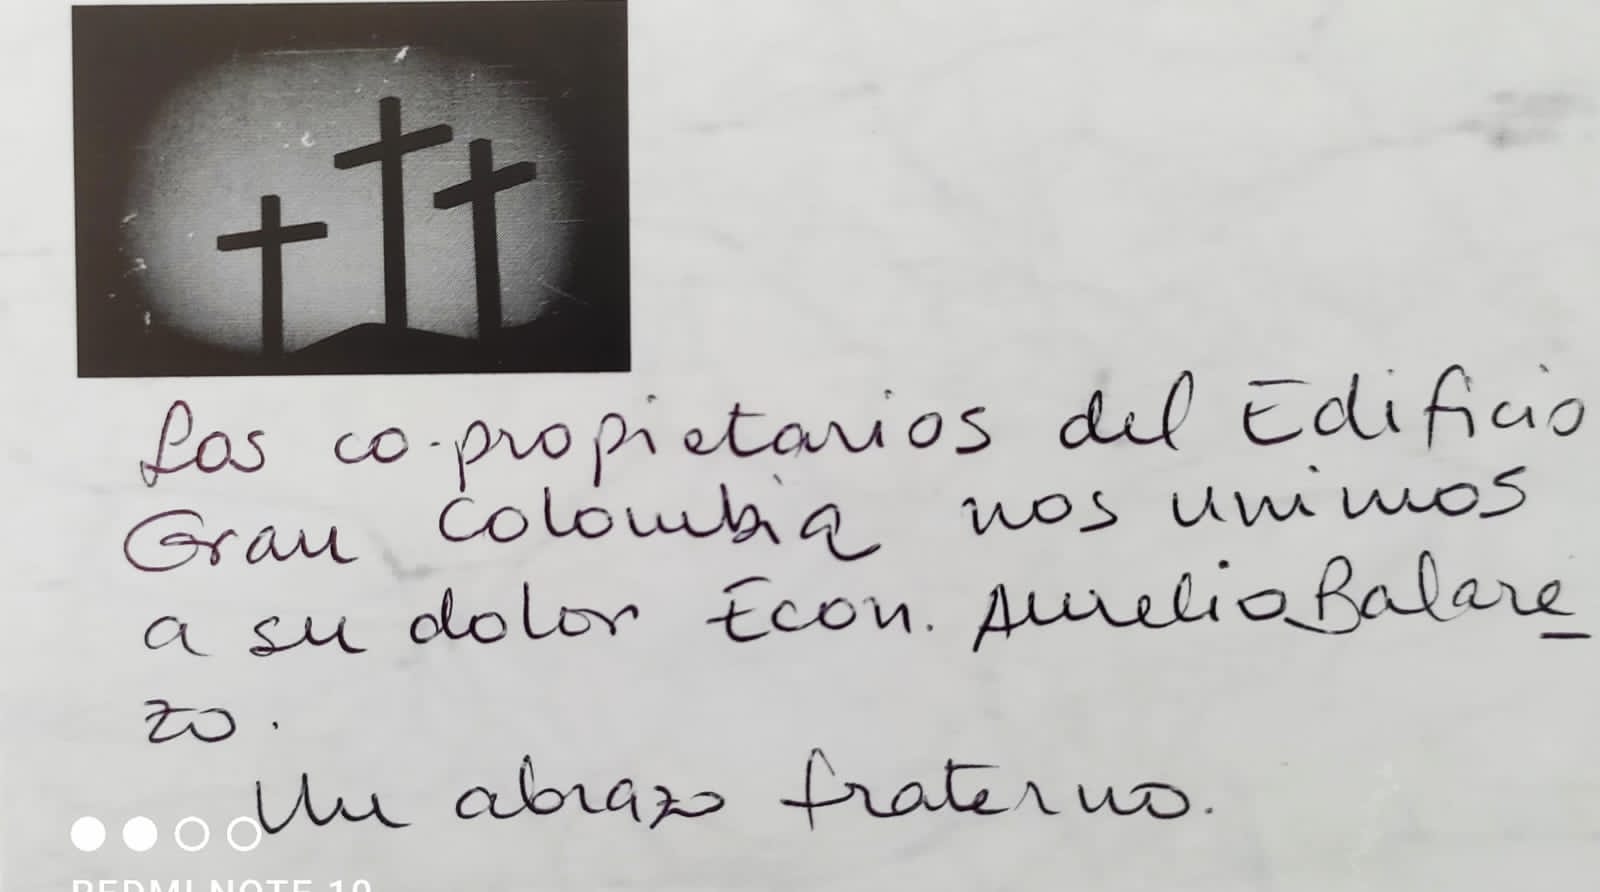 Los co-propietarios del Edificio
Gran Colombia nos unimos
a su dolor Econ. Aurelio Balare
zo.
Un abrazo fraterno.
REDMI NOTE 10